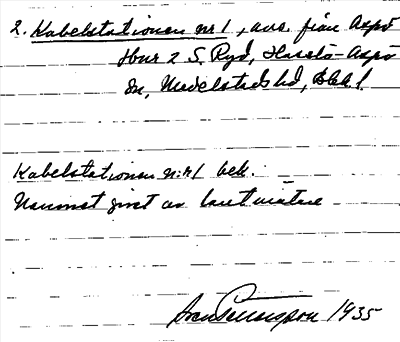 2. Kabelstationen nr 1, avs. från Aspö
Hmr 2 S. Ryd, Hasslö-Aspö
sn, Medelstads hd, Blek. l.
Kabelstationen nr 1 bek.
Namnet givet av lantmätare
1935